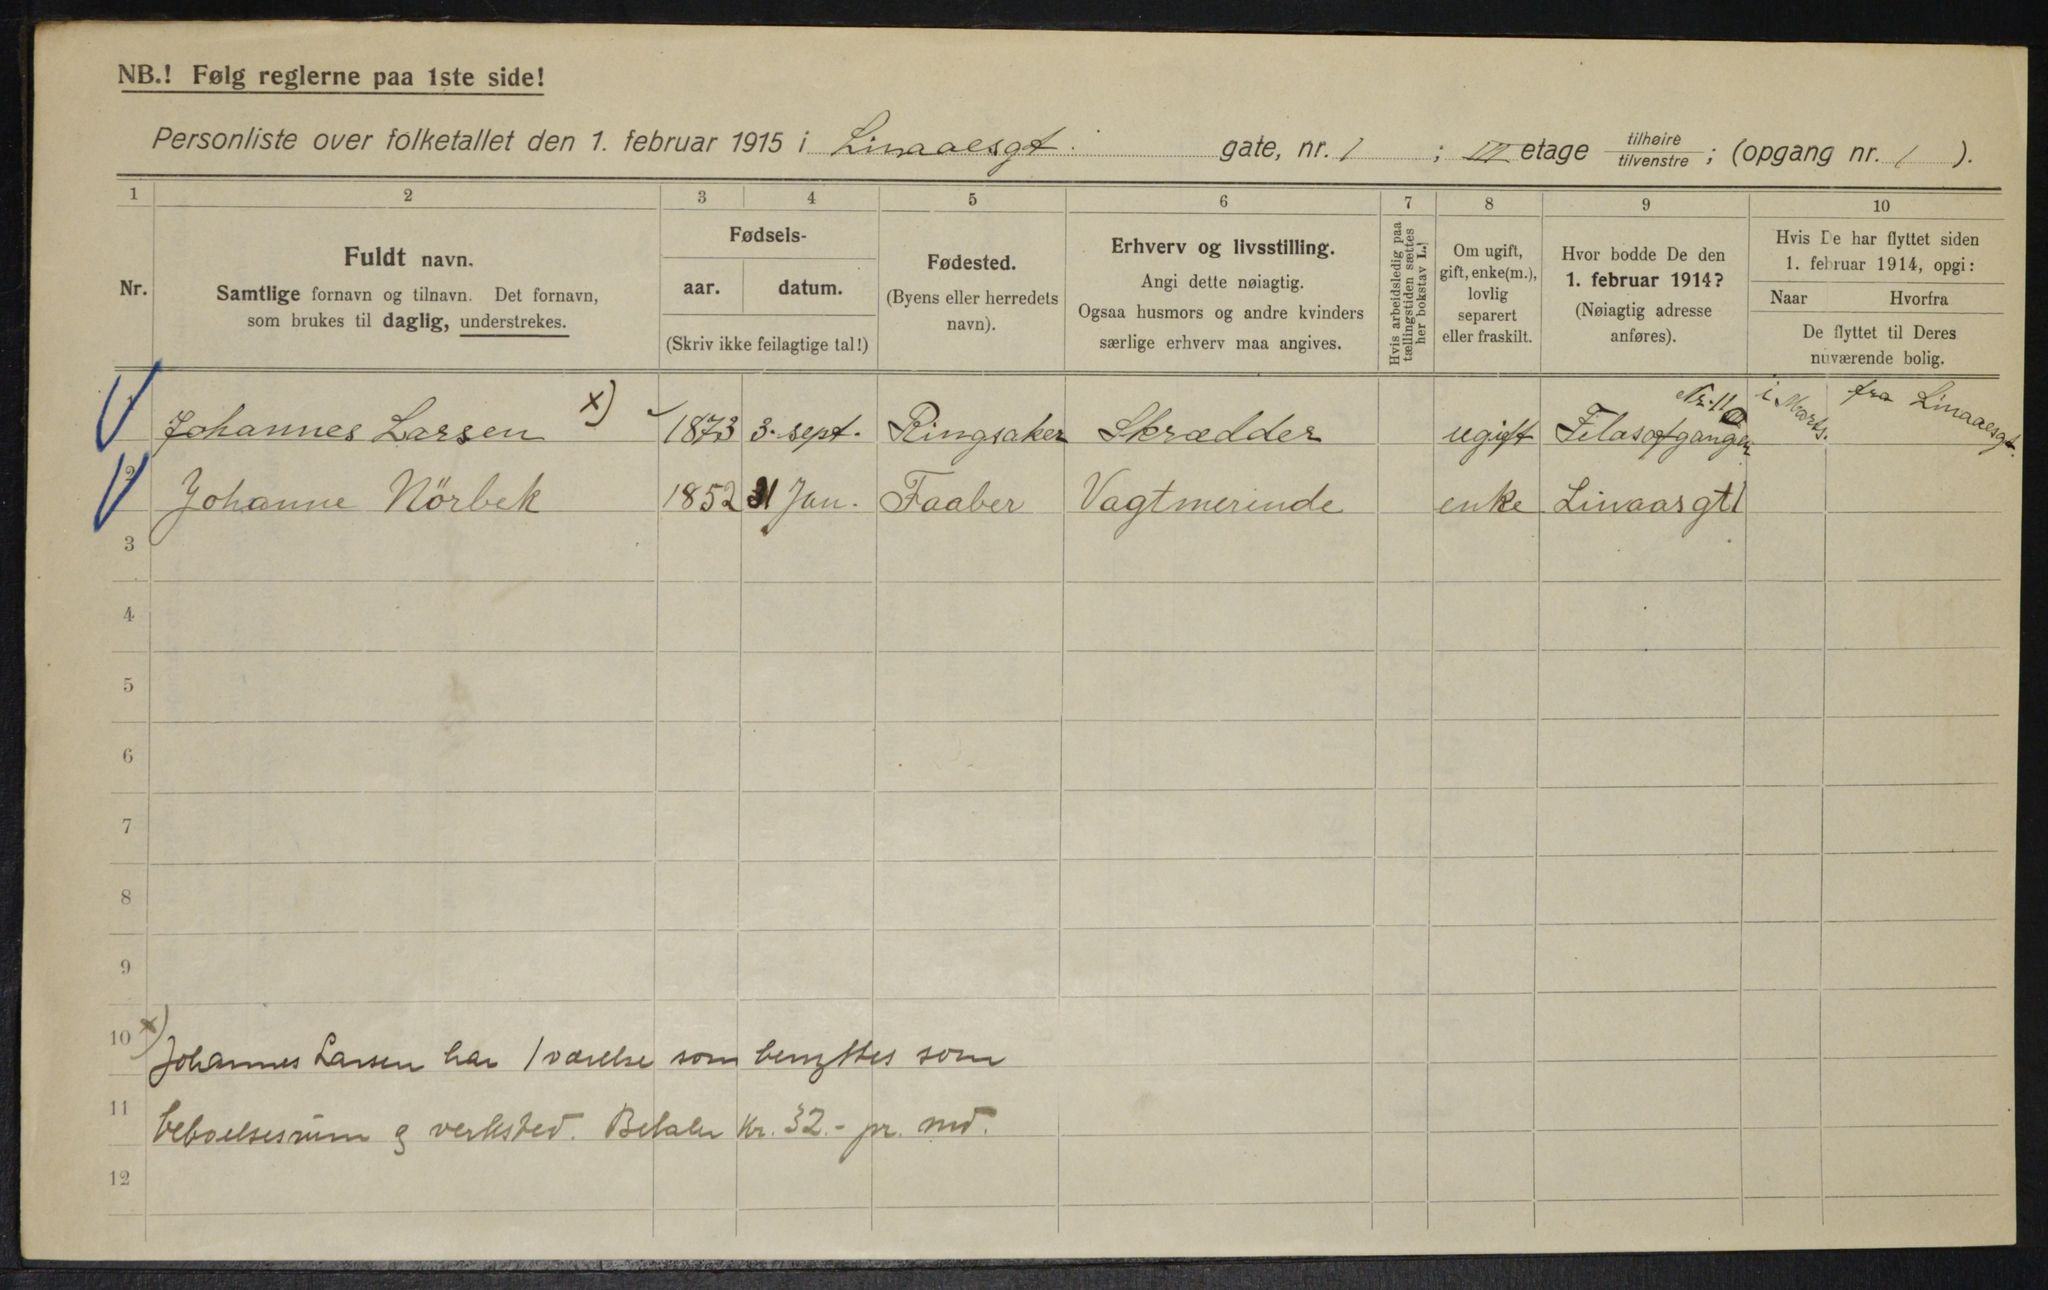 NB.! Følg reglerne paa 1ste side!
Personliste over folketallet den 1. februar 1915 i Linaaesgt. gate, nr. 1 ; III etage tilhøire / tilvenstre ; (opgang nr. 1 ).
1 2 3 4 5 6 7 8 9 10
Nr.
Fuldt navn.
Samtlige fornavn og tilnavn. Det fornavn,
som brukes til daglig, understrekes.
Fødsels-
aar. datum.
(Skriv ikke feilagtige tal!)
Fødested.
(Byens eller herredets
navn).
Erhverv og livsstilling.
Angi dette nøiagtig.
Ogsaa husmors og andre kvinders
særlige erhverv maa angives.
Hvis arbeidsledig paa
tællingstiden sættes
her bokstav L.!
Om ugift,
gift, enke(m.),
lovlig
separert
eller fraskilt.
Hvor bodde De den
1. februar 1914?
(Nøiagtig adresse
anføres).
Hvis De har flyttet siden
1. februar 1914, opgi:
Naar Hvorfra
De flyttet til Deres
nuværende bolig.
Johannes Larsen x) 1873 3. sept. Ringsaker Skrædder ugift Filasofgangen Nr. 11 i Marts. fra Linaaesgt.
2 Johanne Nörbek 1852 31 Jan. Faaber Vagtmerinde enke Linaasgt 1
3
4
5
6
7
8
9
10 x) Johannes Larsen har 1 værelse som benyttes som
11 beboelsesrum og verksted. Betaler Kr. 32.- pr. md.
12